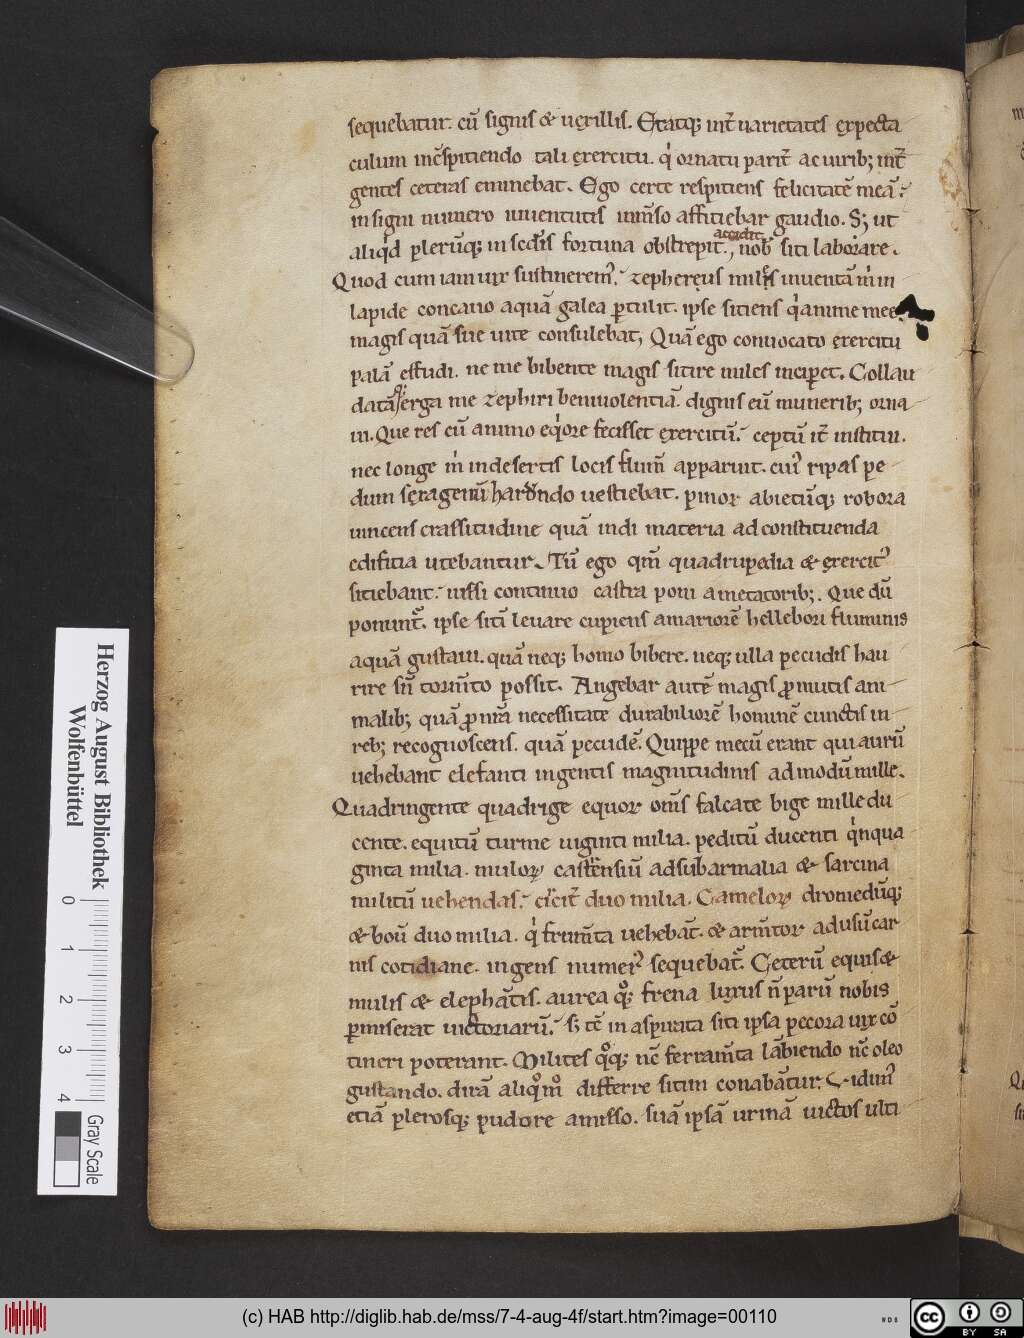 sequebatur. cū signis & uexillis. Eratq; int̄ uarietates expecta
culum inc̄spitiendo tali exercitu. q̇ ornatu parit̄ ac uirib; int̄
gentes ceteras eminebat. Ego certe respitiens felicitatē meā.
insigni numero iuuentutis inm̄so affitiebar gaudio. S; ut
aliqd plerūq; in sedis fortuna obstrepit. accidit nob siti laborare.
Quod cum iam uix sustinerem. zephereus miles inuentā m in
lapide concauo aquā galea ptulit. ipse sitiens q̇ anime mee
magis quā sue uite consulebat, Quā ego conuocato exercitu
palā effudi. ne me bibente magis sitire miles inciperet. Collau
datā q; erga me zephiri beniuolentiā. dignis eū munerib; orna
ui. Que res cū animo eqiore fecisset exercitū. ceptū it̄ institui.
nec longe m̄ in desertis locis flum̄ apparuit. cui ripas pe
dum sexagenū harundo uestiebat. pinor abietūq; robora
uincens crassitudine quā indi materia ad constituenda
edifitia utebantur. Tū ego qm̄ quadrupedia & exercit
sitiebant. iussi continuo castra poni a metatorib;. Que dū
ponunt. ipse sitī leuare cupiens amariorē hellebori fluminis
aquā gustaui. quā neq; homo bibere. neq; ulla pecudis hau
rire sn̄ torm̄to possit. Angebar autē magis pro mutis ani
malib; quā pro nr̄a necessitate durabiliorē hominē cunctis in
reb; recognoscens. quā pecudē. Quippe mecū erant qui aurū
uehebant elefanti ingentis magnitudinis admodū mille.
Quadringente quadrige equor om̄s falcate bige mille du
cente. equitū turme uiginti milia. peditū ducenti qinqua
ginta milia. mulor castrensiū ad subarmalia & sarcina
militū uehendas. circit̄ duo milia. Camelor dromedūq;
& boū duo milia. q̇ frum̄ta uehebāt. & arm̄tor ad usū car
nis cotidiane. ingens numer sequebat. Ceterū equis &
mulis & elephātis. aurea qq frena luxus n̄ parū nobis
pmiserat uictoriarū. s; tē in aspirata siti ipsa pecora uix cō
tineri poterant. Milites qq; nc̄ ferram̄ta lābiendo nc̄ oleo
gustando. dirā aliqm̊ differre sitim conabātur. Vidim
etiā plerosq; pudore amisso. suā ipsā urinā uictos ulti
Herzog August Bibliothek
Wolfenbüttel
0 1 2 3 4
Gray Scale
(c) HAB http://diglib.hab.de/mss/7-4-aug-4f/start.htm?image=00110
cc BY SA